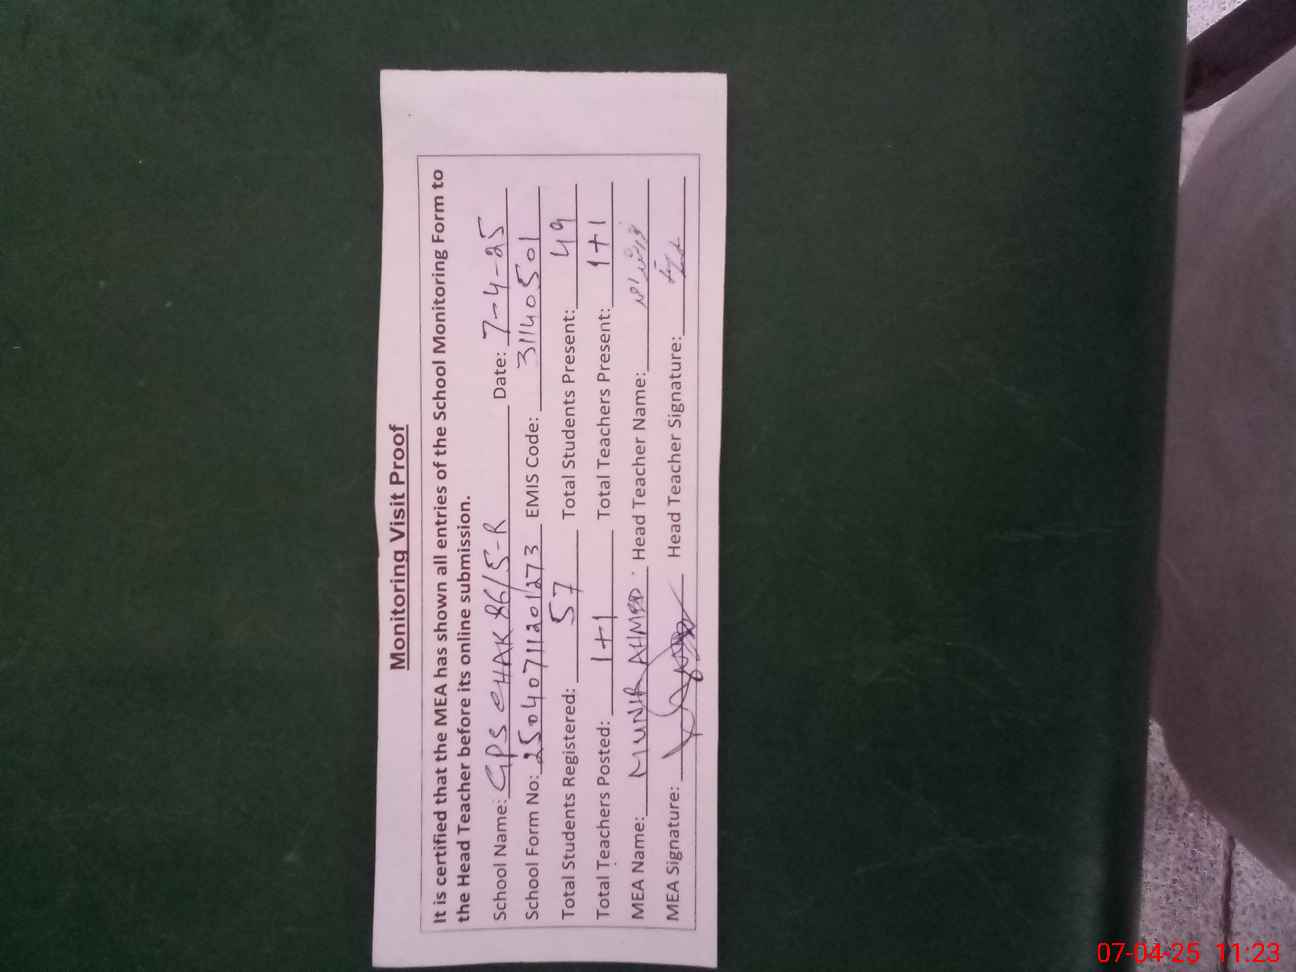 Monitoring Visit Proof
It is certified that the MEA has shown all entries of the School Monitoring Form to
the Head Teacher before its online submission.
School Name: GPS CHAK 86/5-R Date: 7-4-25
School Form No: 25040711201273 EMIS Code: 31140501
Total Students Registered: 57 Total Students Present: 49
Total Teachers Posted: 1+1 Total Teachers Present: 1+1
MEA Name: MUNIR AHMED. Head Teacher Name:
MEA Signature: Head Teacher Signature:
07-04-25 11:23